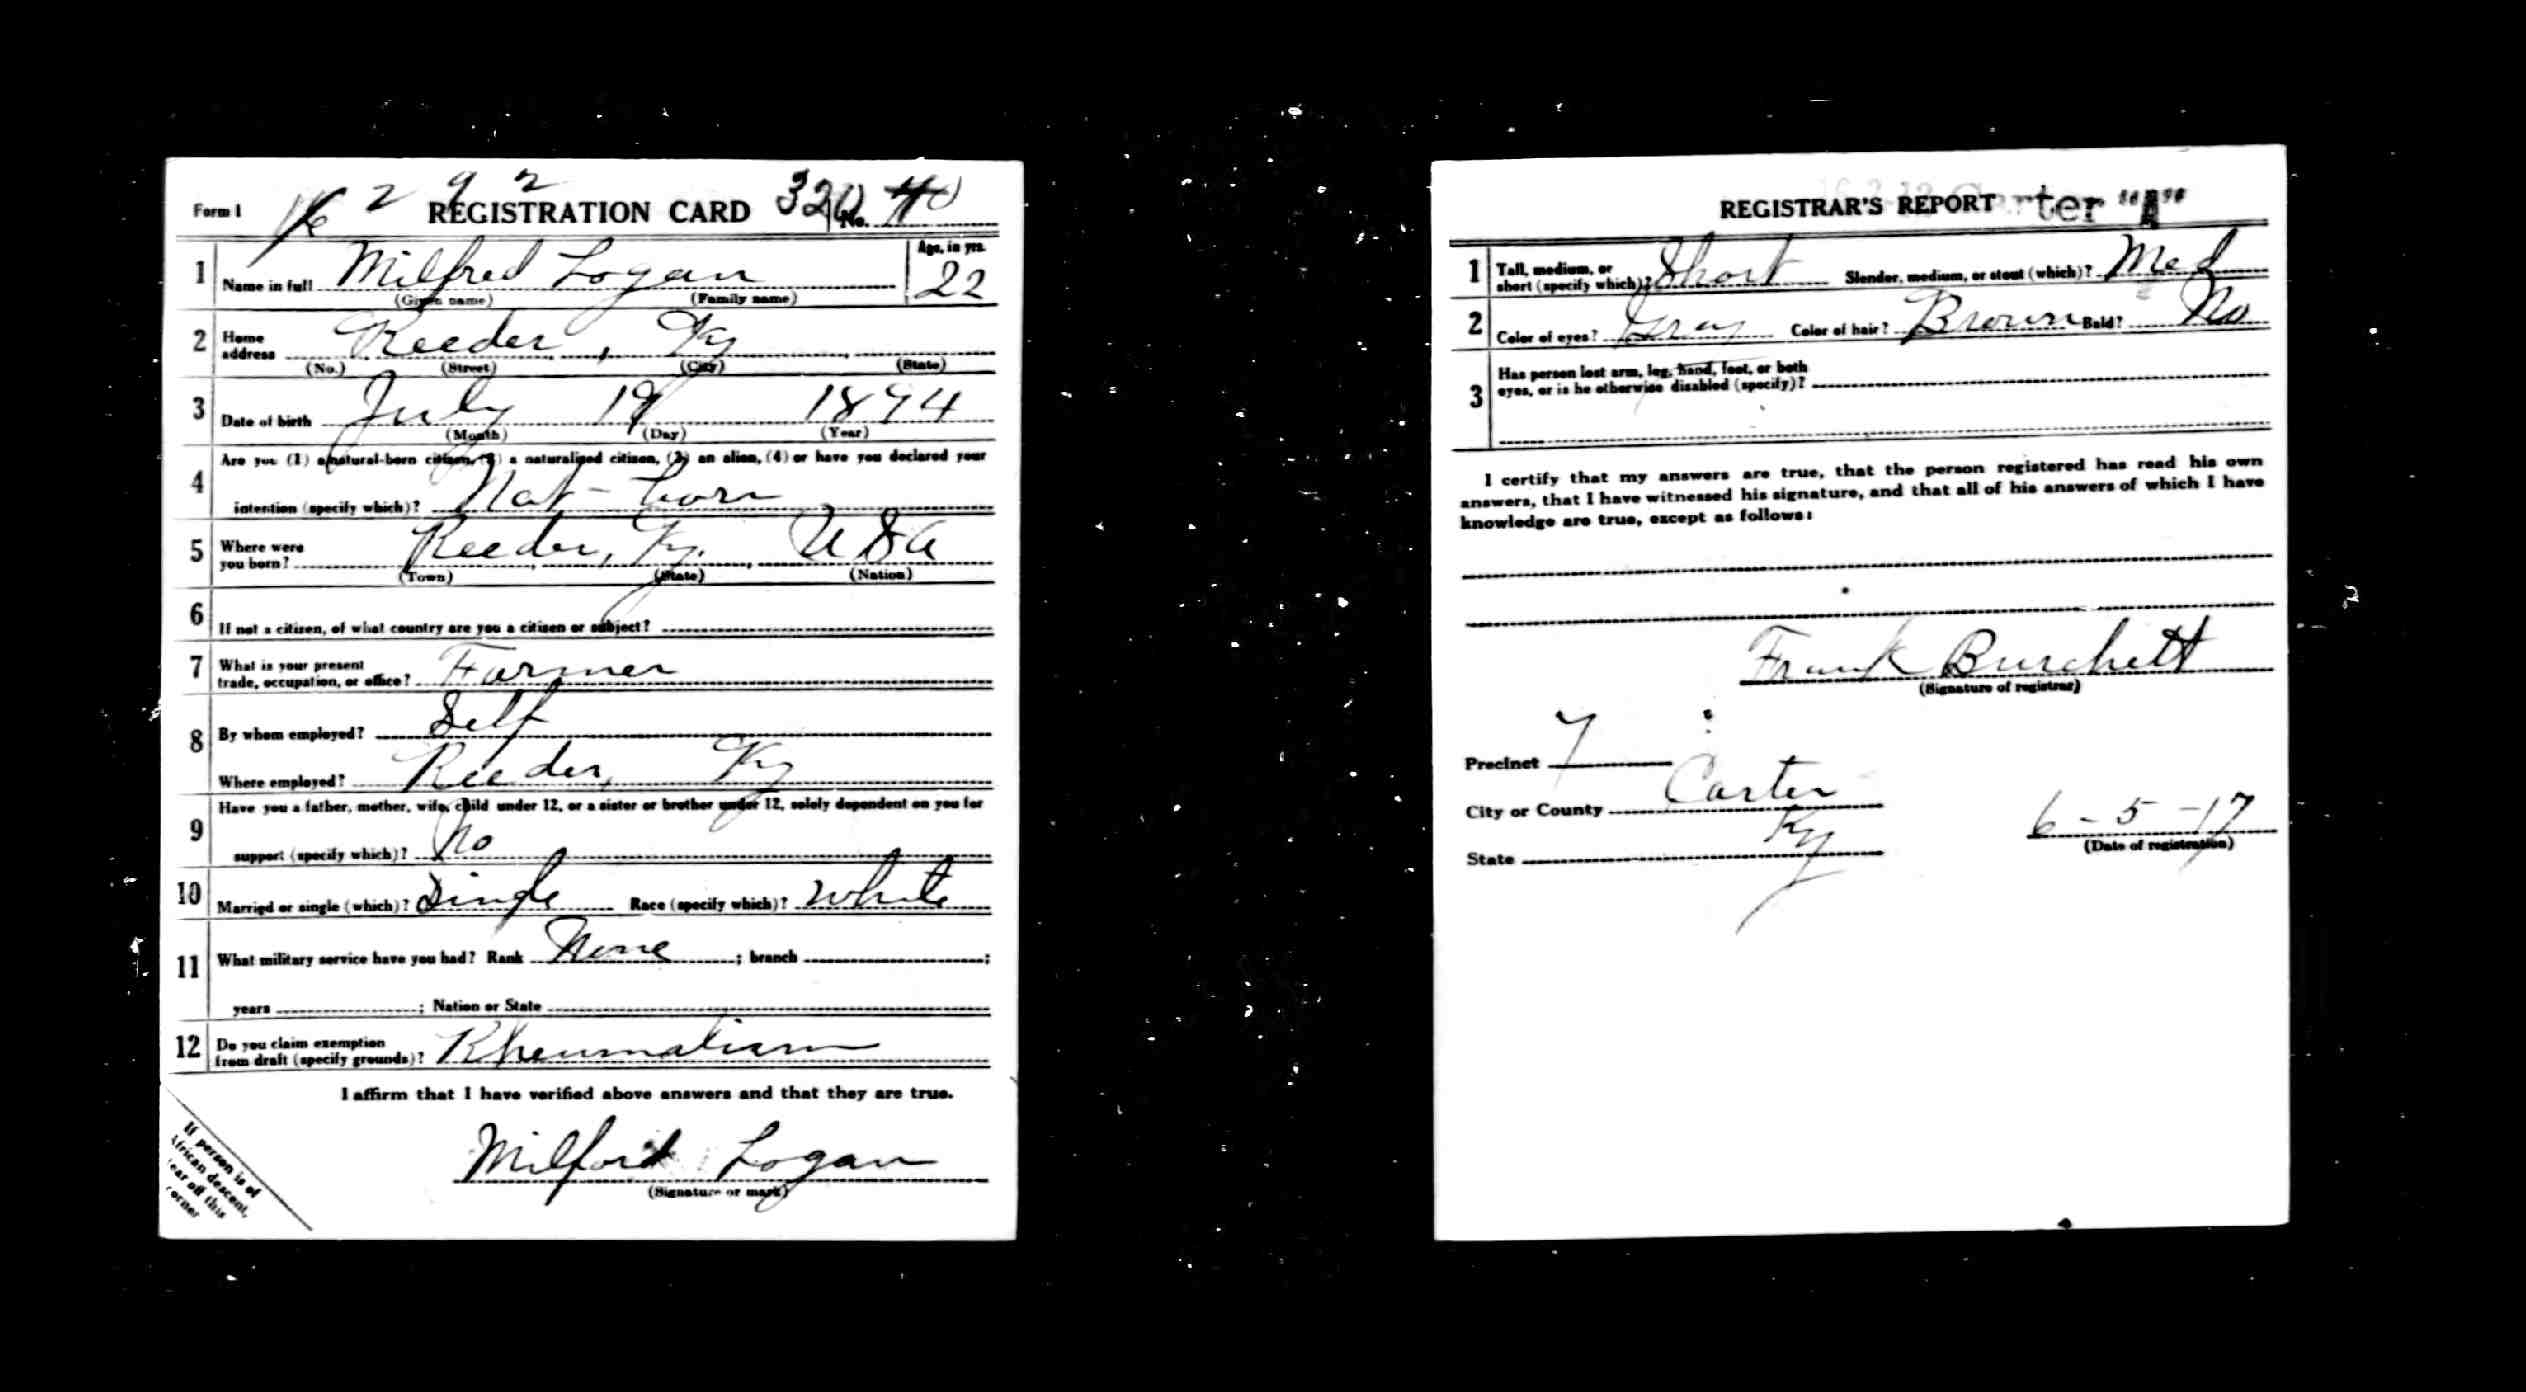 Form 1 292 REGISTRATION CARD 320 No. 40
1 Name in full Milfred Logan Age, in yrs. 22
(Given name) (Family name)
2 Home address Reeder, Ky
(No.) (Street) (City) (State)
3 Date of birth July 19 1894
(Month) (Day) (Year)
4 Are you (1) a natural-born citizen, (2) a naturalized citizen, (3) an alien, (4) or have you declared your
intention (specify which)? Nat-born
5 Where were you born? Reeder, Ky. USA
(Town) (State) (Nation)
6 If not a citizen, of what country are you a citizen or subject?
7 What is your present trade, occupation, or office? Farmer
8 By whom employed? Self
Where employed? Reeder, Ky
9 Have you a father, mother, wife, child under 12, or a sister or brother under 12, solely dependent on you for
support (specify which)? No
10 Married or single (which)? Single Race (specify which)? White
11 What military service have you had? Rank None ; branch ;
years ; Nation or State
12 Do you claim exemption from draft (specify grounds)? Rheumatism
I affirm that I have verified above answers and that they are true.
Milford Logan
(Signature or mark)
If person is of
African descent,
tear off this
corner
REGISTRAR'S REPORT Carter "A"
1 Tall, medium, or short (specify which)? Short Slender, medium, or stout (which)? Med
2 Color of eyes? Gray Color of hair? Brown Bald? No
3 Has person lost arm, leg, hand, foot, or both
eyes, or is he otherwise disabled (specify)?
I certify that my answers are true, that the person registered has read his own
answers, that I have witnessed his signature, and that all of his answers of which I have
knowledge are true, except as follows:
Frank Burchett
(Signature of registrar)
Precinct 7
City or County Carter
State Ky
6-5-17
(Date of registration)